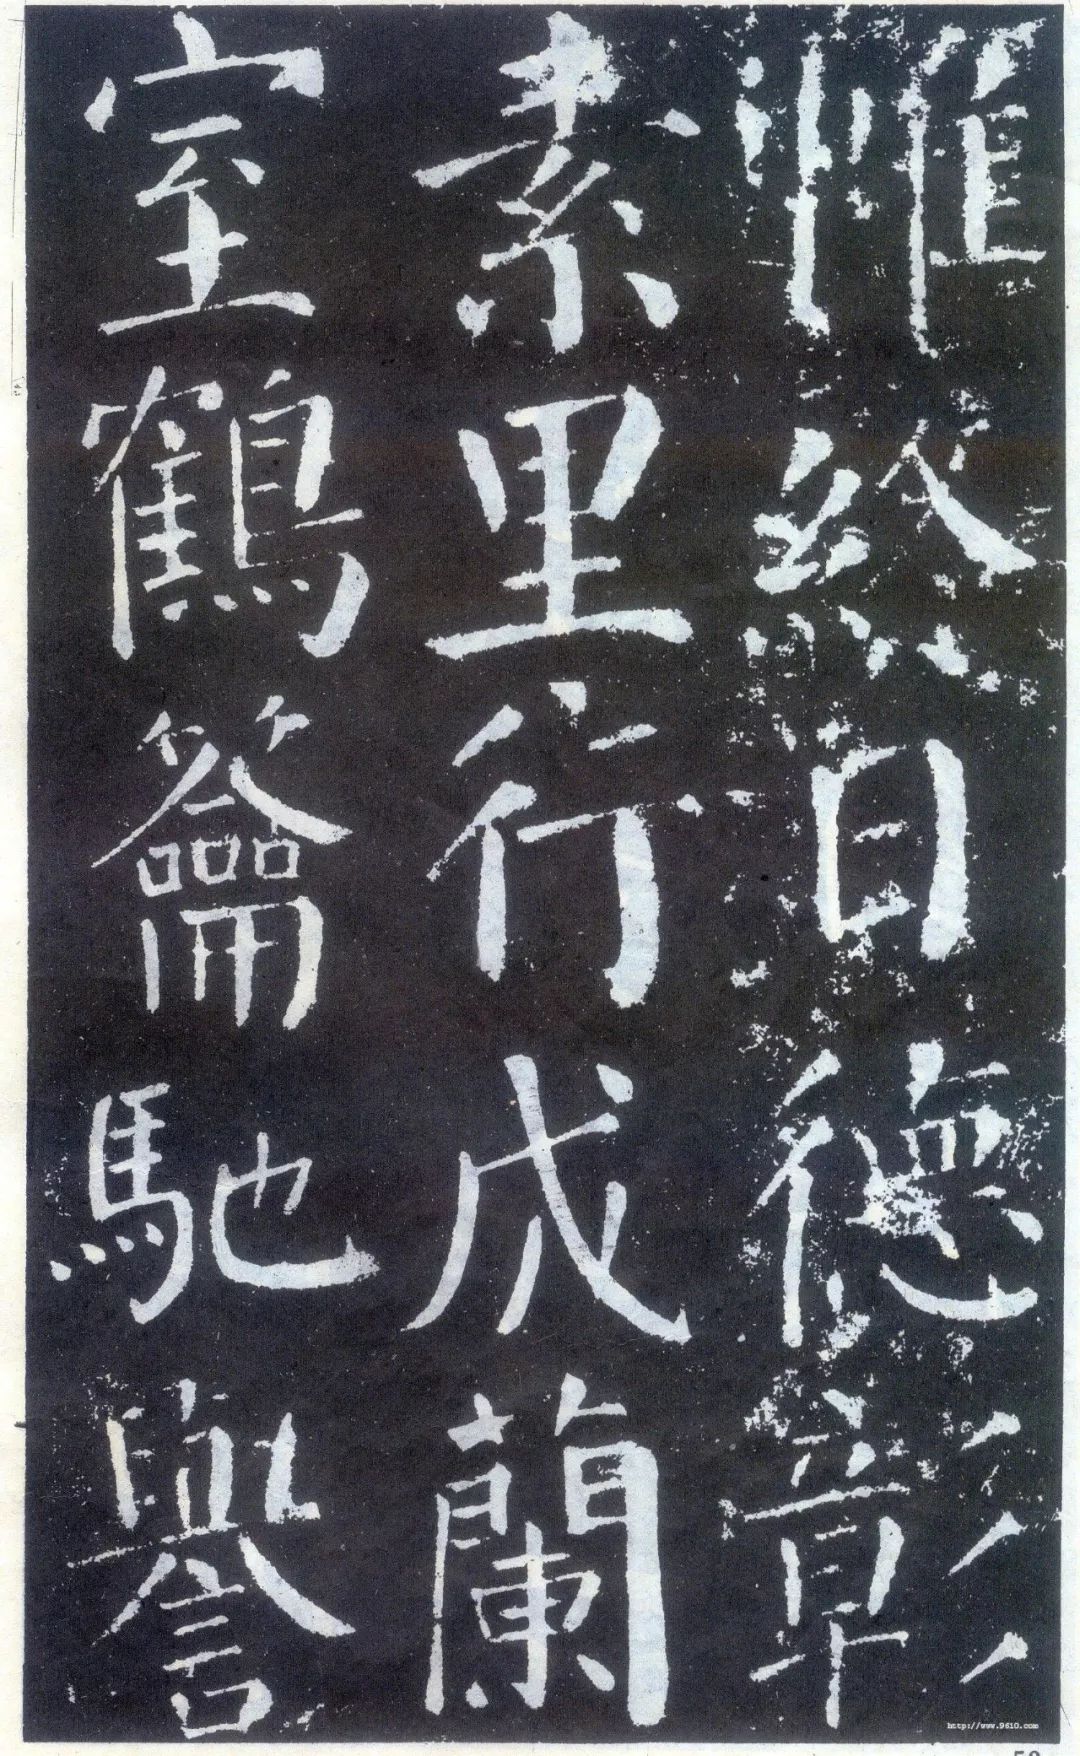 帷終日德彰
素里行成蘭
室鶴籥馳譽
http://www.9610.com